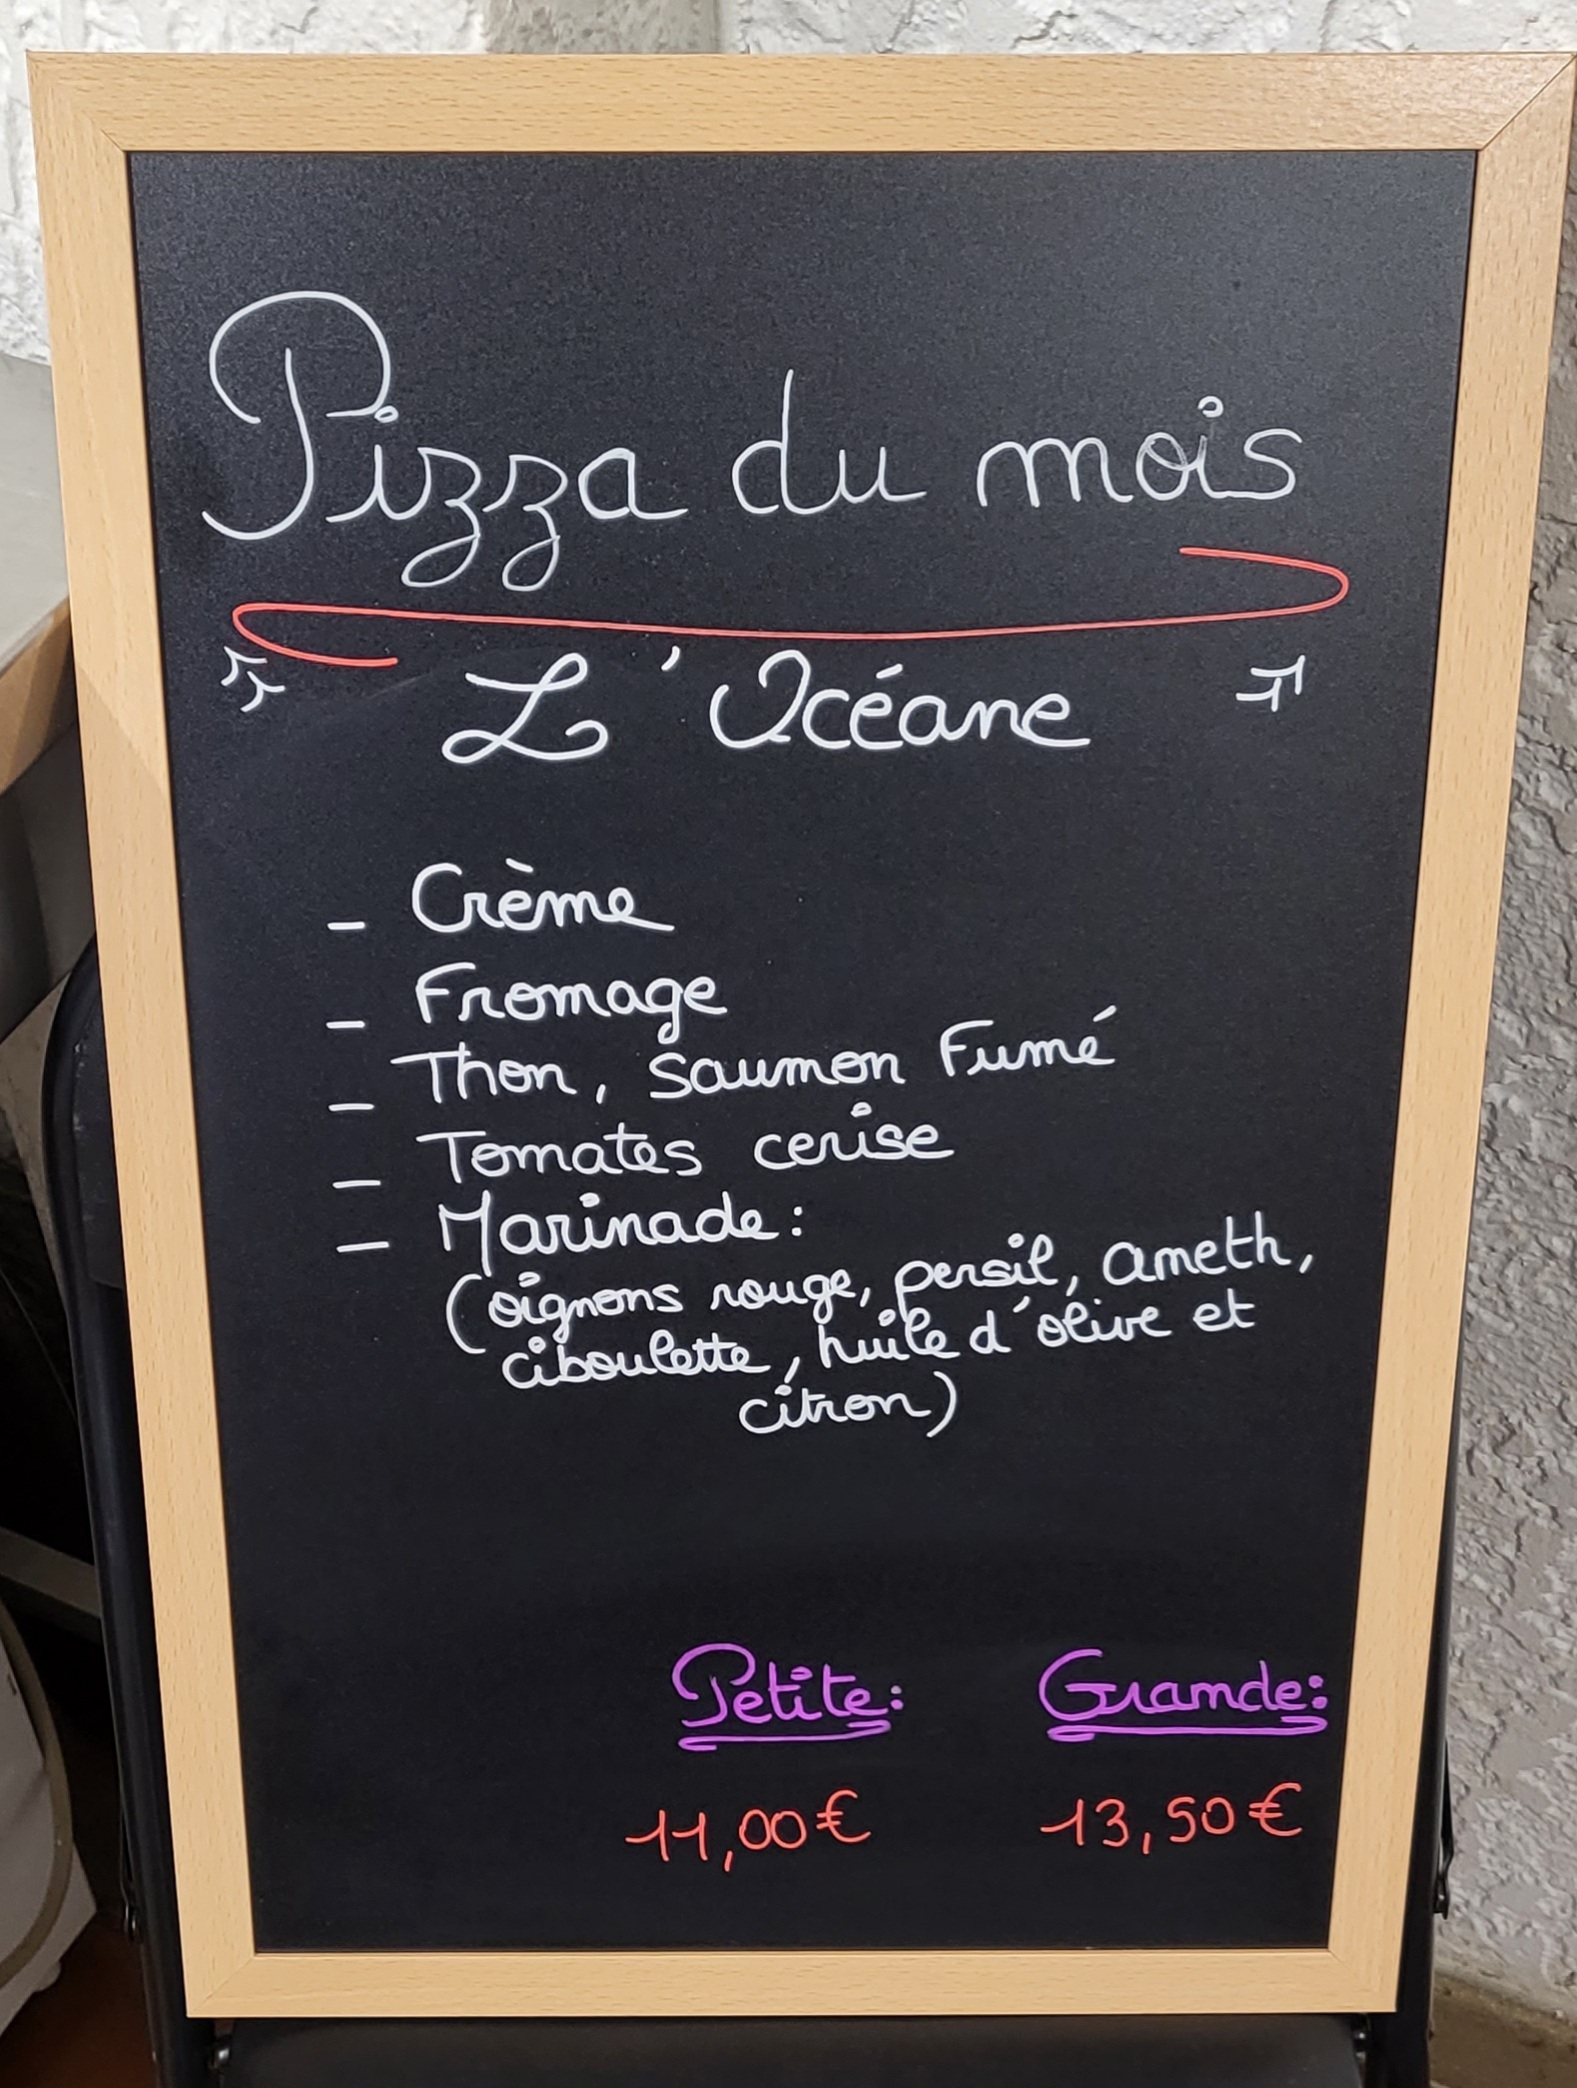 Pizza du mois
L'Océane
- Crème
- Fromage
- Thon, Saumon Fumé
- Tomates cerise
- Marinade:
(oignons rouge, persil, ameth,
ciboulette, huile d'olive et
citron)
Petite: Grande:
11,00€ 13,50€